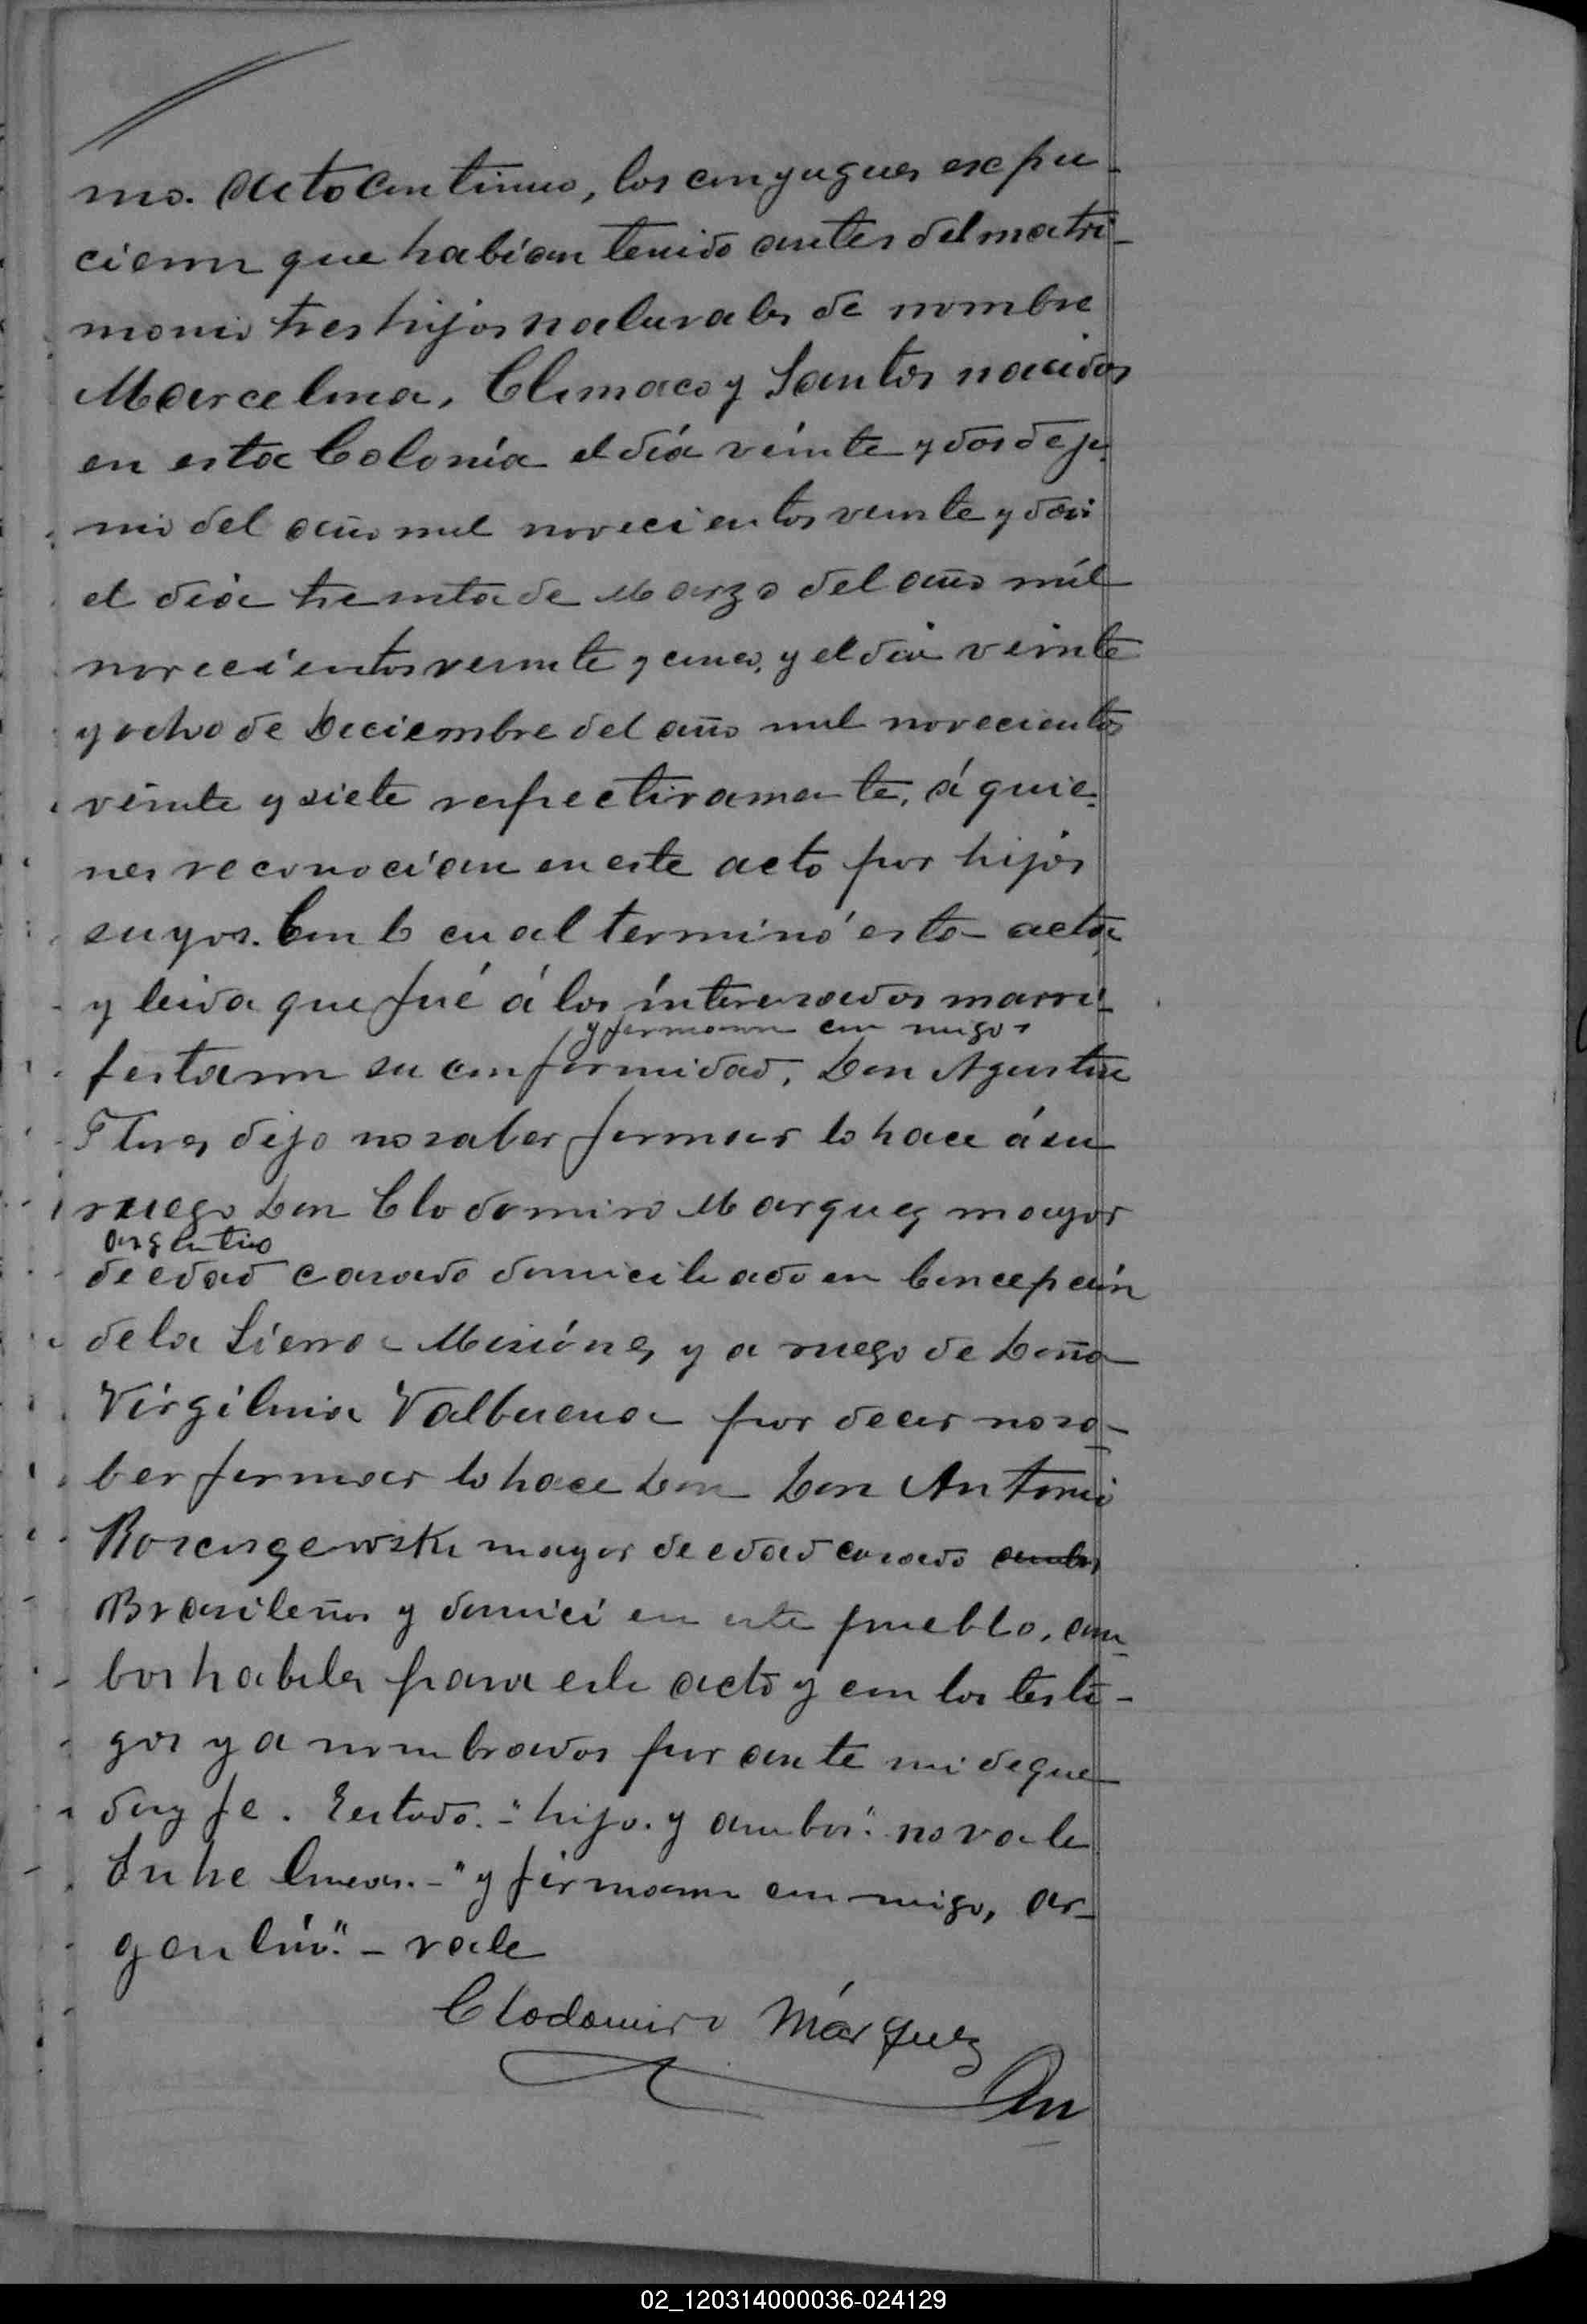 mo. Acto continuo, los conyugues expu-
cieron que habían tenido antes del matri-
monio tres hijos naturales de nombre
Marcelina, Climaco y Santos nacidos
en esta Colonia el día veinte y dos de ju-
nio del año mil novecientos veinte y dos
el día treinta de Marzo del año mil
novecientos veinte y cinco, y el dia veinte
y ocho de Deciembre del año mil novecientos
veinte y siete respectivamente, á quie-
nes reconocían en este acto por hijos
suyos. Con lo cual terminó esta acta
y leida que fué á los interesados mani-
y firmaron con migo
festaron su conformidad, Don Agustin
Flores dijo no saber firmar lo hace á su
ruego Don Clodomiro Marquez mayor
argentino
de edad casado domiciliado en Concepción
de la Sierra Misiónes y a ruego de Doña
Virgilinia Valbuena por decir no sa-
ber firmar lo hace Don Don Antonio
mayor de edad casado ambos
Brasileños y domici en este pueblo, am-
bos habiles para este acto y con los testi-
gos ya nombrados por ante mi de que
doy fe. Testado.-"hijo. y ambos". no vale
Entre lineas.-"y firmaron con migo, ar-
gentino".- vale
Clodomiro Márquez
An
02_120314000036-024129